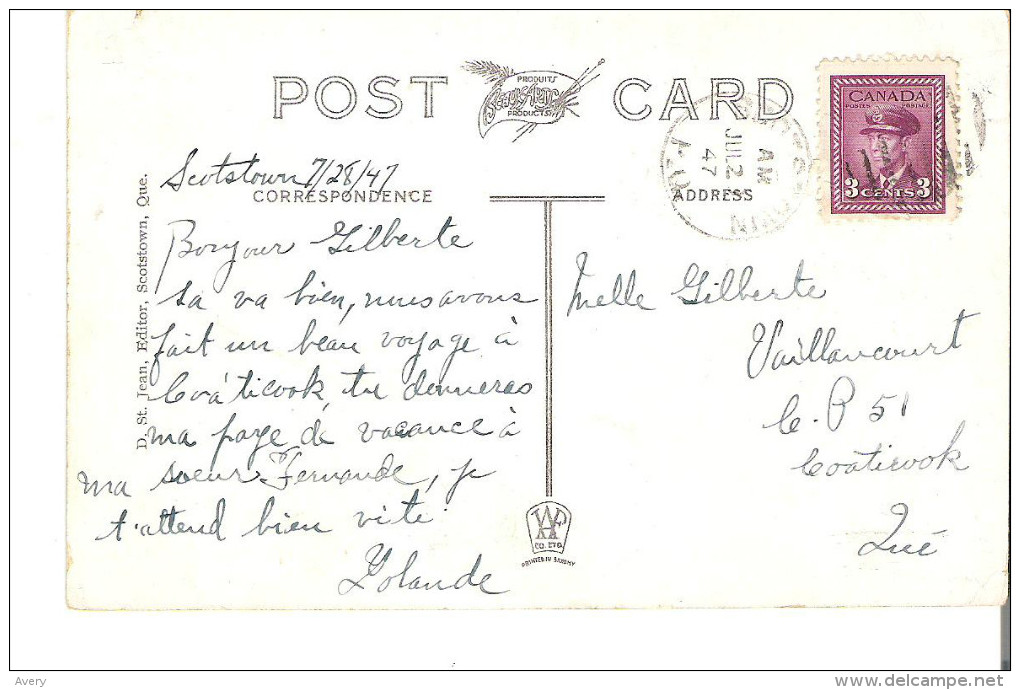 POST CARD
PRODUITS
BEAUX-ARTS
PRODUCTS
CANADA
POSTES POSTAGE
3 CENTS 3
AM
JUL 2
47
Scotstown 7/28/47
CORRESPONDENCE
ADDRESS
Bonjour Gilberte
sa va bien, nous avons
fait un beau voyage à
Coáticook, tu donneras
ma page de vacance à
ma soeur Fernande, je
t'attend bien vite.
Yolande
Melle Gilberte
Vaillancourt
C.P 51
Coaticook
Qué
D. St. Jean, Editor, Scotstown, Que.
CO. LTD.
Avery
delcampe.net